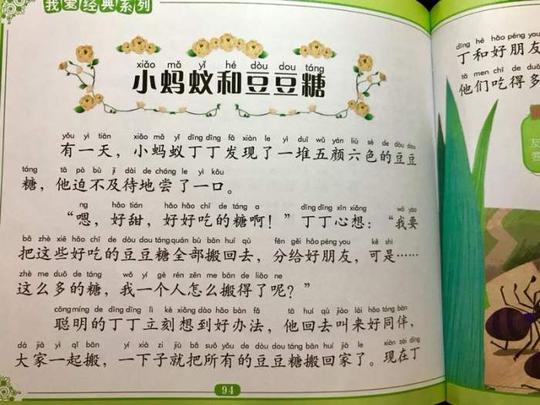 我爱经典系列
xiǎo mǎ yǐ hé dòu dou táng
小蚂蚁和豆豆糖
yǒu yì tiān xiǎo mǎ yǐ dīng dīng fā xiàn le yì duī wǔ yán liù sè de dòu dou
有一天，小蚂蚁丁丁发现了一堆五颜六色的豆豆
táng tā pò bù jí dài de cháng le yì kǒu
糖，他迫不及待地尝了一口。
ng hǎo tián hǎo hǎo chī de táng a dīng dīng xīn xiǎng wǒ yào
“嗯，好甜，好好吃的糖啊！”丁丁心想：“我要
bǎ zhè xiē hǎo chī de dòu dou táng quán bù bān huí qù fēn gěi hǎo péng you kě shì
把这些好吃的豆豆糖全部搬回去，分给好朋友，可是……
zhè me duō de táng wǒ yí gè rén zěn me bān de liǎo ne
这么多的糖，我一个人怎么搬得了呢？”
cōng míng de dīng dīng lì kè xiǎng dào hǎo bàn fǎ tā huí qù jiào lái hǎo tóng bàn
聪明的丁丁立刻想到好办法，他回去叫来好同伴，
dà jiā yì qǐ bān yí xià zi jiù bǎ suǒ yǒu de dòu dou táng bān huí jiā le xiàn zài dīng
大家一起搬，一下子就把所有的豆豆糖搬回家了。现在丁
94
dīng hé hǎo péng you
丁和好朋友
tā men chī de duō
他们吃得多